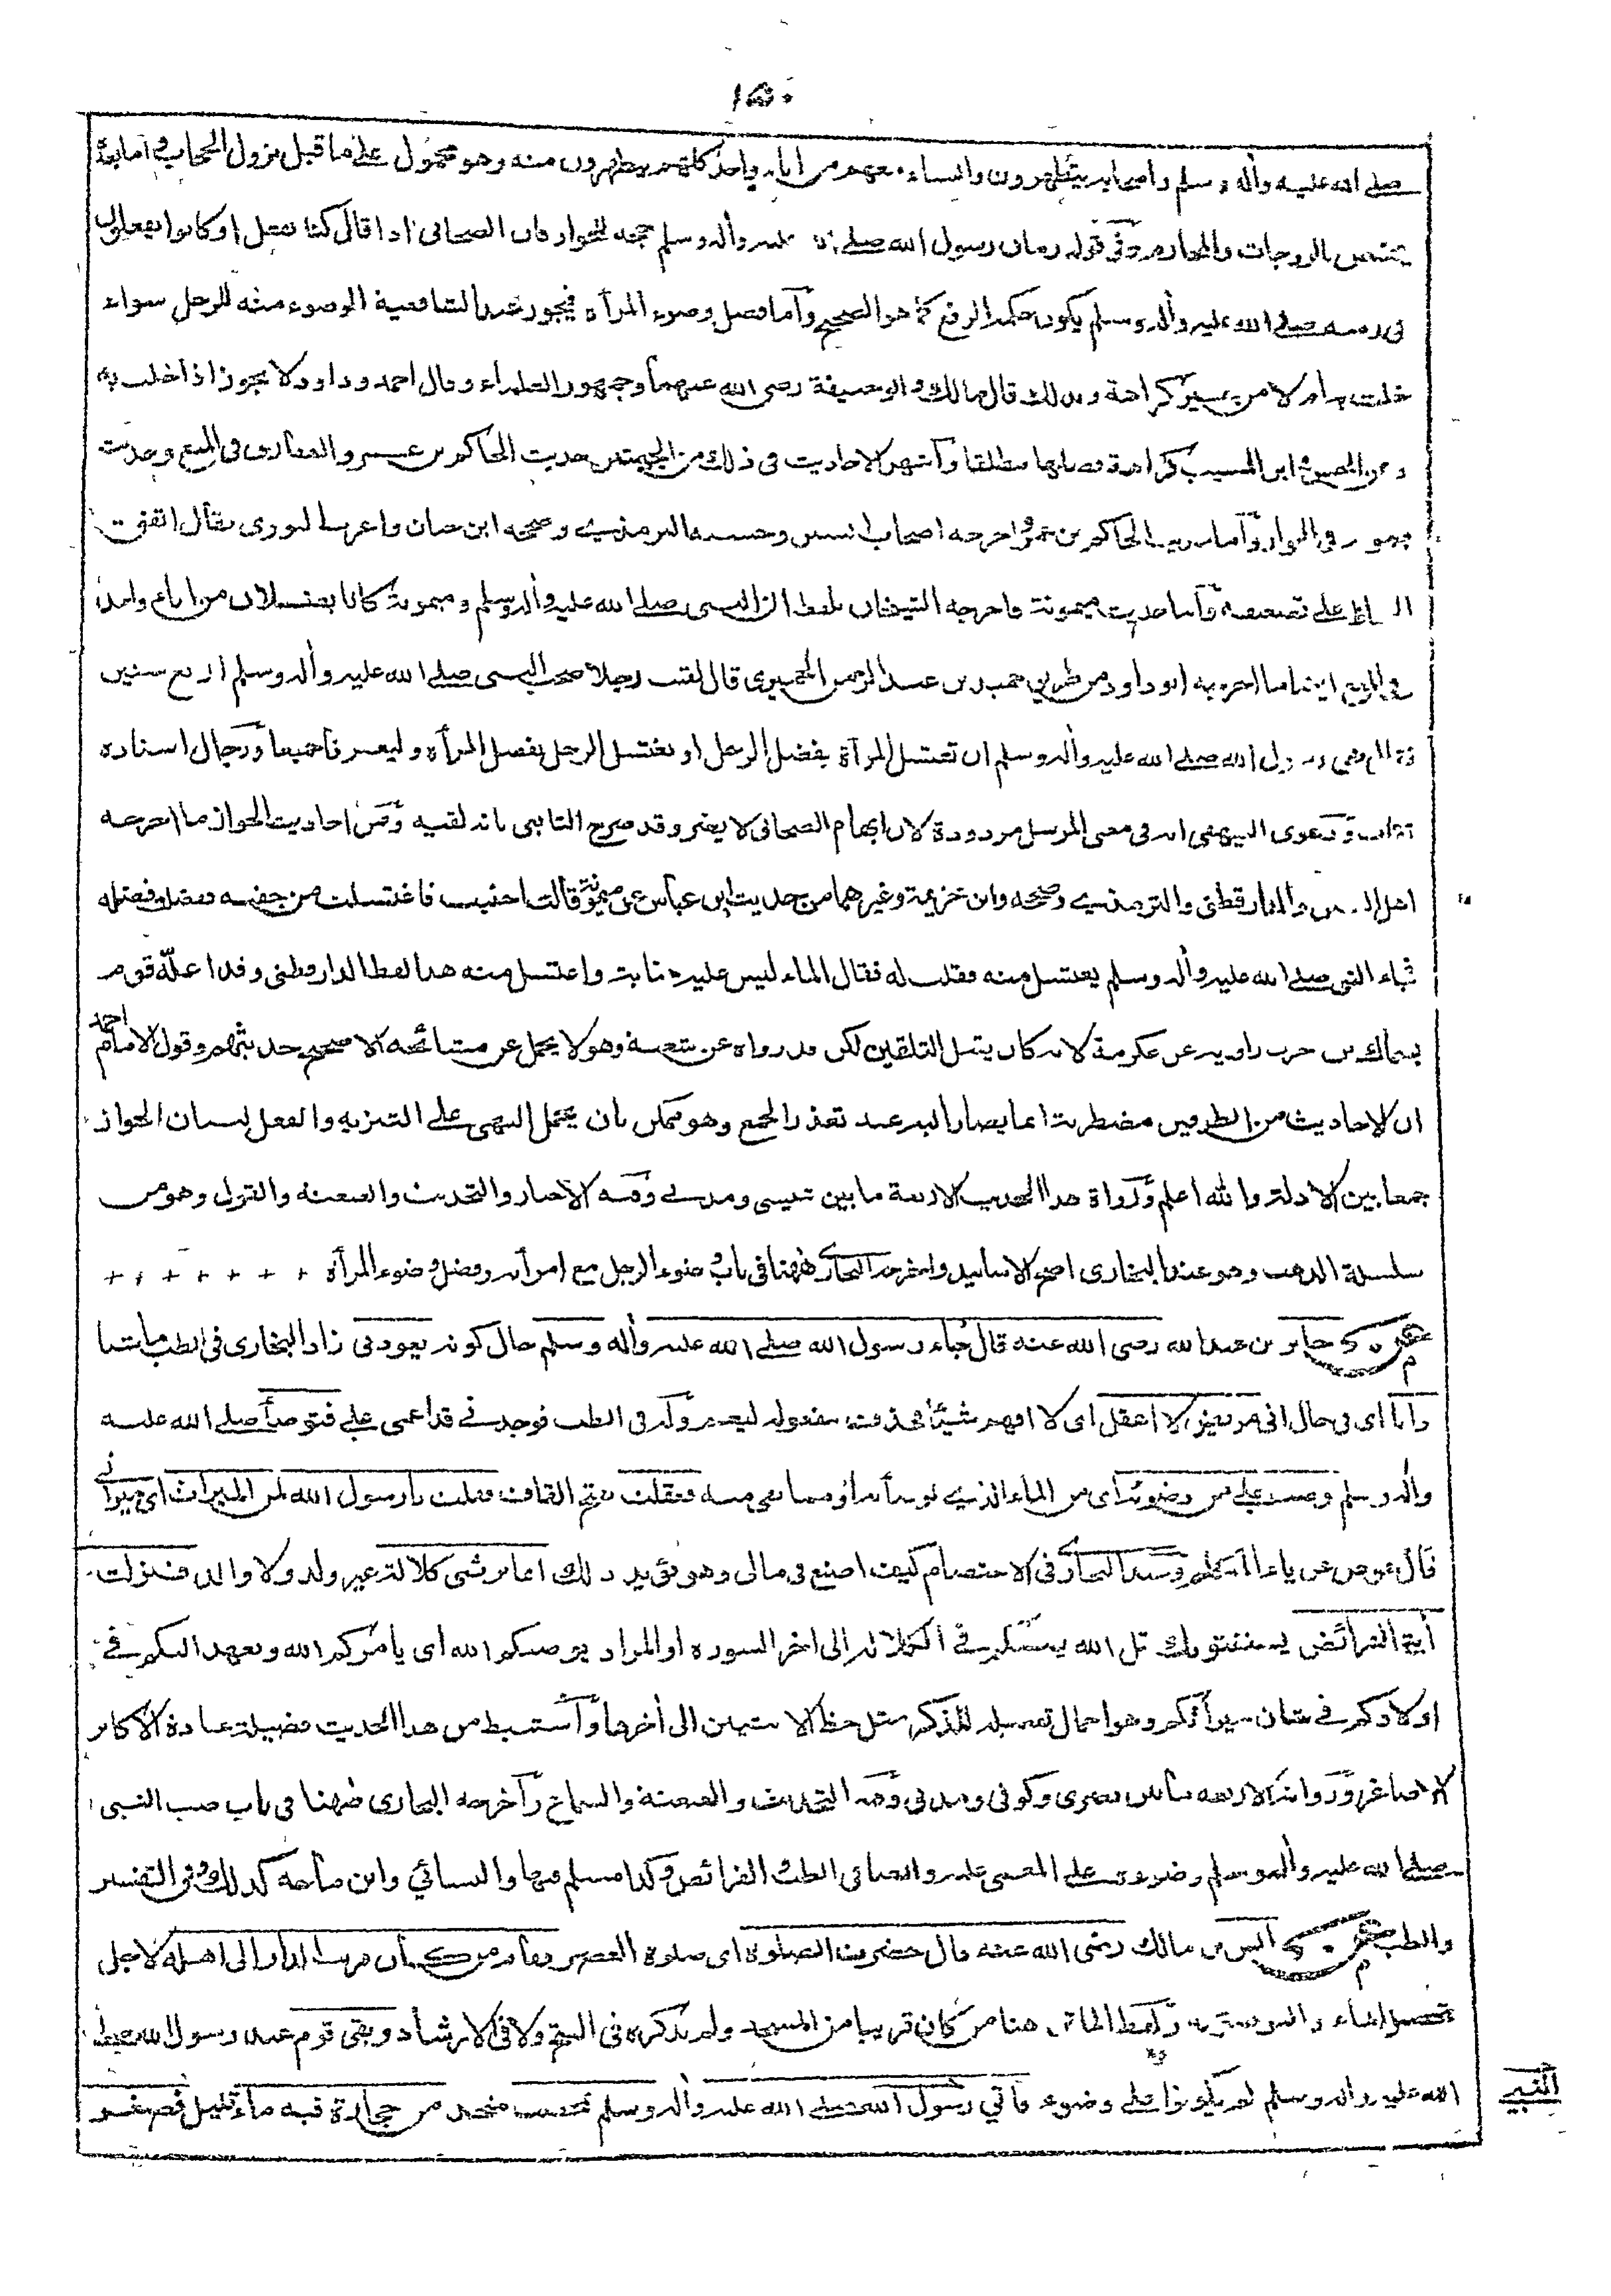 ١٥٠
صلى الله عليه وأله وسلم واصحابه يتطهرون والنساء معهم من اناء واحد كلهم يتطهرون منه وهو محمول على ما قبل نزول الحجاب واما بعده
يختص بالزوجات والمحارم وفى قوله زمان رسول الله صلى الله عليه وأله وسلم حجة للجواز فان الصحابى اذا قال كنا نفعل او كانوا يفعلون
فى زمنه صلى الله عليه وأله وسلم يكون حكمه الرفع كما هو الصحيح وأما فضل وضوء المرأة فيجوز عند الشافعية الوضوء منه للرجل سواء
خلت به ام لا من غير كراهة وبذلك قال مالك وابو حنيفة رضى الله عنهما وجمهور العلماء وقال احمد وداود لا يجوز اذا خلت به
وعن الحسن وابن المسيب كراهة فضلها مطلقا وأشهر الاحاديث فى ذلك من الجهتين حديث الحاكم بن عمرو الغفارى فى المنع وحديث
ميمونة فى الجواز وأما حديث الحاكم بن عمرو اخرجه اصحاب السنن وحسنه الترمذى وصححه ابن حبان واغرب النورى فقال اتفقت
الحفاظ على تضعيفه وأما حديث ميمونة فاخرجه الشيخان بلفظ ان النبى صلى الله عليه وأله وسلم وميمونة كانا يغتسلان من اناء واحد
وفى المنع ايضا ما اخرجه ابو داود من طريق حميد بن عبد الرحمن الحميرى قال لقيت رجلا صحب النبى صلى الله عليه وأله وسلم اربع سنين
فقال نهى رسول الله صلى الله عليه وأله وسلم ان تغتسل المرأة بفضل الرجل او يغتسل الرجل بفضل المرأة وليغترفا جميعا ورجال اسناده
ثقات ودعوى البيهقى انه فى معنى المرسل مردودة لان ابهام الصحابى لا يضر وقد صرح التابعى بانه لقيه ومن احاديث الجواز ما اخرجه
اهل السنن والدارقطنى والترمذى وصححه وابن خزيمة وغيرهما من حديث ابن عباس عن ميمونة قالت اجنبت فاغتسلت من جفنه ففضلت فضله
فجاء النبى صلى الله عليه وأله وسلم يغتسل منه فقلت له فقال الماء ليس عليه جنابة واغتسل منه هذا لفظ الدارقطنى وقد اعله قوم
بسماك بن حرب راويه عن عكرمة لانه كان يقبل التلقين لكن قد رواه عن شعبة وهو لا يحمل عن مشائخه الا صحيح حديثهم وقول الامام احمد
ان الاحاديث من الطرفين مضطربة انما يصار اليه عند تعذر الجمع وهو ممكن بان يحمل النهى على التنزيه والفعل لبيان الجواز
جمعا بين الادلة والله اعلم ورواة هذا الحديث الاربعة ما بين تنيسى ومدنى وفيه الاخبار والتحديث والعنعنة والقول وهو من
سلسلة الذهب وهو عند البخارى اصح الاسانيد واخرجه البخارى ههنا فى باب وضوء الرجل مع امرأته وفضل وضوء المرأة + + + + + + +
عن جابر بن عبد الله رضى الله عنه قال جاء رسول الله صلى الله عليه وأله وسلم حال كونه يعودنى زاد البخارى فى الطب ماشيا
وانا اى فى حال انى مريض لا اعقل اى لا افهم شيئا فحذف مفعوله ليعم وله فى الطب فوجدنى قد اغمى على فتوضأ صلى الله عليه
وأله وسلم وصب على من وضوئه اى من الماء الذى توضأ به او مما بقى منه فعقلت بفتح القاف فقلت يا رسول الله لمن الميراث اى ميراثى
قال عوض عن ياء المتكلم وعند البخارى فى الاعتصام كيف اصنع فى مالى وهو يؤيد ذلك انما يرثنى كلالة غير ولد ولا والد فنزلت
أية الفرائض يستفتونك قل الله يفتيكم فى الكلالة الى اخر السورة او المراد يوصيكم الله اى يامركم الله ويعهد اليكم فى
اولادكم فى شان ميراثكم وهو اجمال تفصيله للذكر مثل حظ الانثيين الى أخرها وأستنبط من هذا الحديث فضيلة عيادة الاكابر
الاصاغر ورواته الاربعة ما بين بصرى وكوفى ومدنى وفيه التحديث والعنعنة والسماع وأخرجه البخارى ههنا فى باب صب النبى
صلى الله عليه وأله وسلم وضوءه على المغمى عليه وايضا فى الطب والفرائض وكذا مسلم فيها والنسائي وابن ماجه كذلك وفى التفسير
والطب عن انس بن مالك رضى الله عنه قال حضرت الصلوة اى صلوة العصر فقام من كان قريب الدار الى اهله لاجل
تحصيل الماء والتوضئ به ولفظ المتن هنا من كان قريبا من المسجد ولم يذكره فى الفتح ولا فى الارشاد وبقى قوم عند رسول الله صلى
الله عليه وأله وسلم لم يكونوا على وضوء فأتي رسول الله صلى الله عليه وأله وسلم بمخضب متخذ من حجارة فيه ماء قليل فصغر